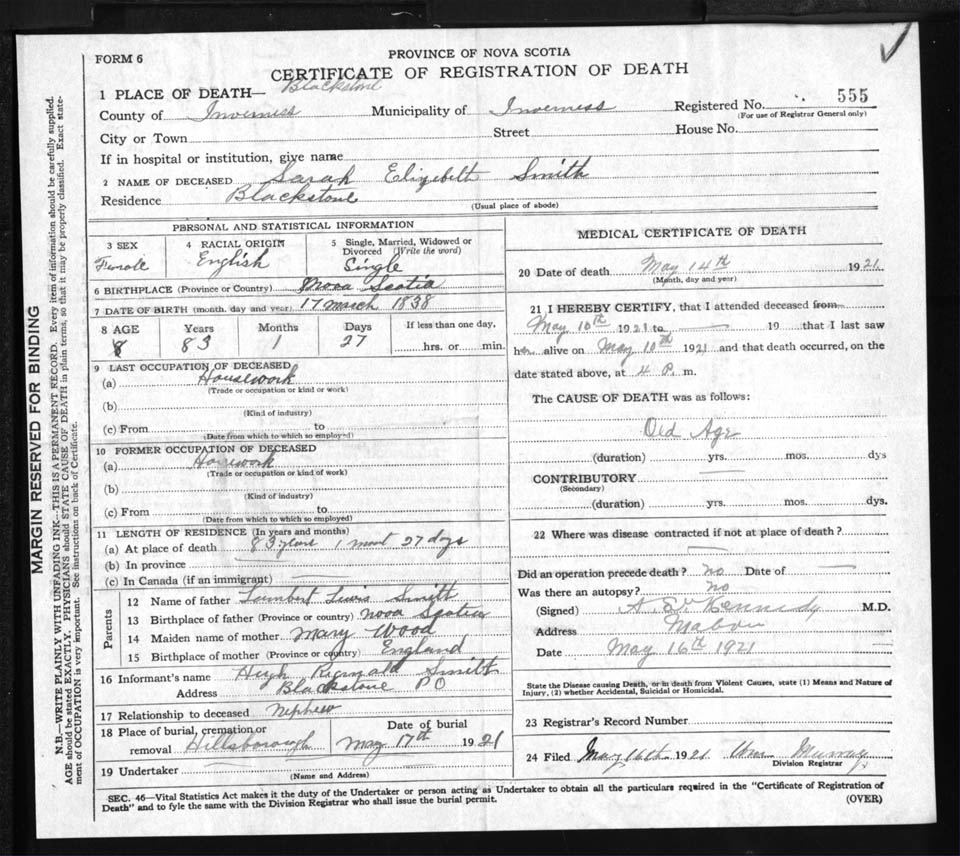 FORM 6
PROVINCE OF NOVA SCOTIA
CERTIFICATE OF REGISTRATION OF DEATH
1 PLACE OF DEATH— Blackstone
County of Inverness Municipality of Inverness Registered No. 555
(For use of Registrar General only)
City or Town Street House No.
If in hospital or institution, give name
2 NAME OF DECEASED Sarah Elizebeth Smith
Residence Blackstone
(Usual place of abode)
PERSONAL AND STATISTICAL INFORMATION
3 SEX Female
4 RACIAL ORIGIN English
5 Single, Married, Widowed or Divorced (Write the word) Single
6 BIRTHPLACE (Province or Country) Nova Scotia
7 DATE OF BIRTH (month, day and year) 17 March 1838
8 AGE Years Months Days If less than one day,
83 1 27 hrs. or min.
9 LAST OCCUPATION OF DECEASED
(a) Housework
(Trade or occupation or kind or work)
(b)
(Kind of industry)
(c) From to
(Date from which to which so employed)
10 FORMER OCCUPATION OF DECEASED
(a) Housework
(Trade or occupation or kind of work)
(b)
(Kind of industry)
(c) From to
(Date from which to which so employed)
11 LENGTH OF RESIDENCE (In years and months)
(a) At place of death 83 years 1 mont 27 days
(b) In province
(c) In Canada (if an immigrant)
Parents
12 Name of father Lambert Lewis Smith
13 Birthplace of father (Province or country) Nova Scotia
14 Maiden name of mother Mary Wood
15 Birthplace of mother (Province or country) England
16 Informant's name Hugh Reginald Smith
Address Blackstone P O
17 Relationship to deceased Nephew
18 Place of burial, cremation or removal Hillsborough
Date of burial May 17th 1921
19 Undertaker
(Name and Address)
MEDICAL CERTIFICATE OF DEATH
20 Date of death May 14th 1921
(Month, day and year)
21 I HEREBY CERTIFY, that I attended deceased from
May 10th 1921 to 19 that I last saw
her alive on May 10th 1921 and that death occurred, on the
date stated above, at 4 P. m.
The CAUSE OF DEATH was as follows:
Old Age
(duration) yrs. mos. dys
CONTRIBUTORY
(Secondary)
(duration) yrs. mos. dys.
22 Where was disease contracted if not at place of death?
Did an operation precede death? no Date of
Was there an autopsy? no
(Signed) Kennedy M.D.
Address Mabou
Date May 16th 1921
State the Disease causing Death, or in death from Violent Causes, state (1) Means and Nature of
Injury, (2) whether Accidental, Suicidal or Homicidal.
23 Registrar's Record Number
24 Filed May 16th 1921 Wm Murray
Division Registrar
SEC. 46—Vital Statistics Act makes it the duty of the Undertaker or person acting as Undertaker to obtain all the particulars required in the "Certificate of Registration of
Death" and to fyle the same with the Division Registrar who shall issue the burial permit.
(OVER)
MARGIN RESERVED FOR BINDING
N.B.—WRITE PLAINLY WITH UNFADING INK—THIS IS A PERMANENT RECORD. Every item of information should be carefully supplied.
AGE should be stated EXACTLY. PHYSICIANS should STATE CAUSE OF DEATH in plain terms, so that it may be properly classified. Exact state-
ment of OCCUPATION is very important. See instructions on back of Certificate.